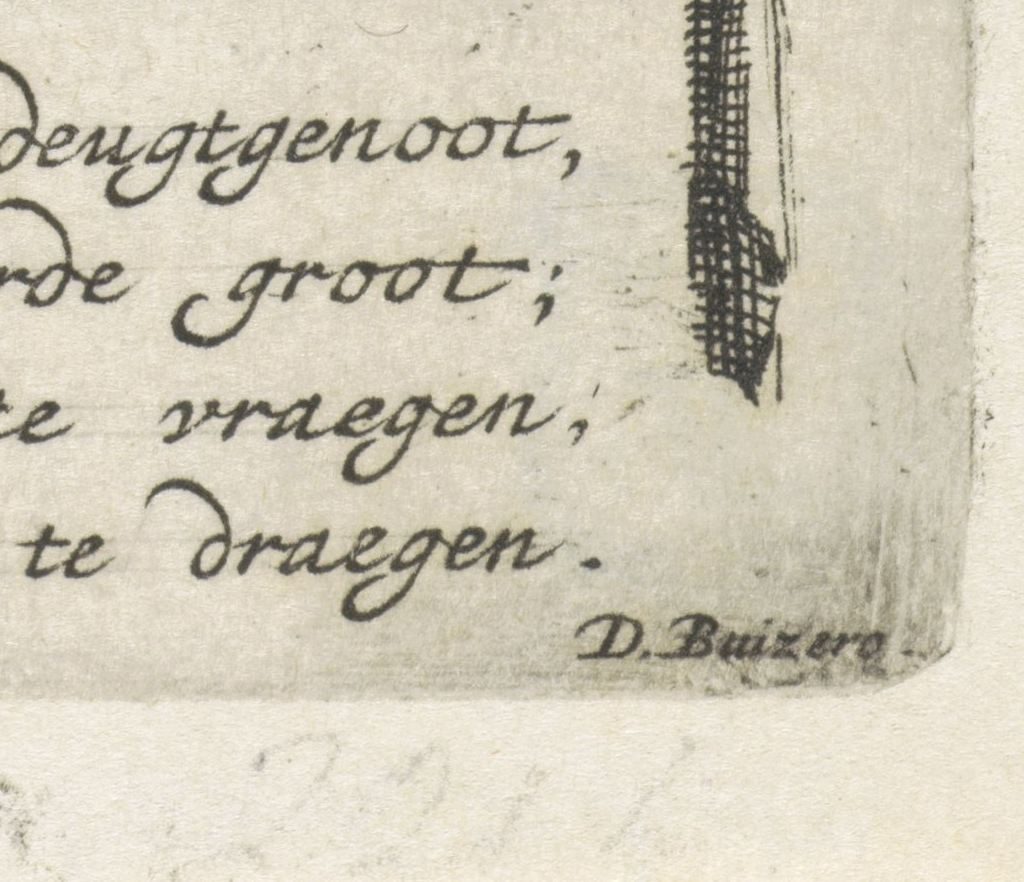 deugtgenoot,
rde groot;
te vraegen;
te draegen.
D. Buizero.